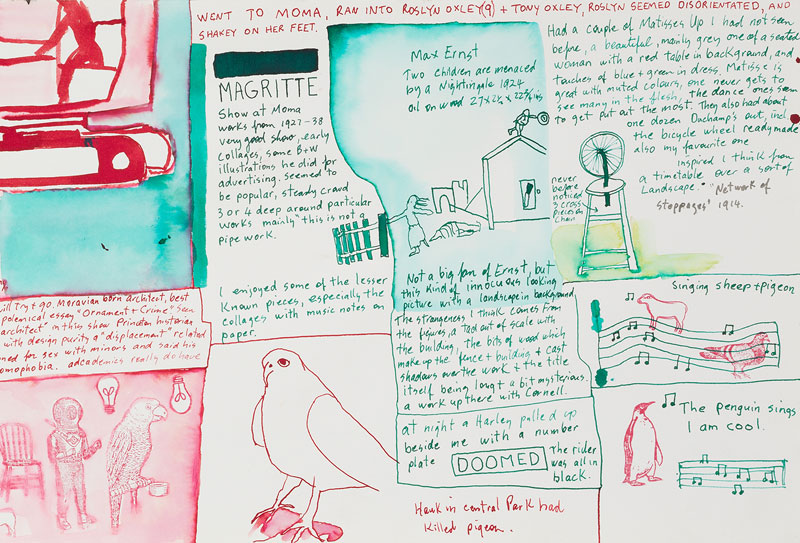 WENT TO MOMA, RAN INTO ROSLYN OXLEY(9) + TONY OXLEY, ROSLYN SEEMED DISORIENTATED, AND
SHAKEY ON HER FEET.
MAGRITTE
Show at Moma
works from 1927-38
very good show, early
Collages, some B+W
illustrations he did for
advertising. Seemed to
be popular, steady crowd
3 or 4 deep around particular
works mainly "this is not a
pipe work.
I enjoyed some of the lesser
known pieces, especially the
collages with music notes on
paper.
Max Ernst
Two children are menaced
by a Nightingale 1924
oil on wood 27 x 22½ x
Not a big fan of Ernst, but
this kind of innocuous looking
picture with a landscape in background
the strangeness I think comes from
the figures, a tad out of scale with
the building, the bits of wood which
make up the fence + building + cast
shadows over the work + the title
itself being long + a bit mysterious.
a work up there with Cornell.
at night a Harley pulled up
beside me with a number
plate DOOMED The rider
was all in
black.
Hawk in central Park had
killed pigeon.
Had a couple of Matisses up I had not seen
before, a beautiful, mainly grey one of a seated
woman with a red table in background, and
touches of blue + green in dress. Matisse is
great with muted colours, one never gets to
see many in the flesh, the 'dance' ones seem
to get put out the most. They also had about
one dozen Duchamp's out, incl
the bicycle wheel readymade
also my favourite one
inspired I think from
a timetable over a sort of
Landscape. "Network of
stoppages" 1914.
never
before
noticed
3 cross
pieces on
Chair
Singing sheep + pigeon
The penguin sings
I am cool.
will Try + go. Moravian born architect, best
polemical essay "Ornament + Crime" seen
architect" in this show Princeton historian
with design purity a "displacement" related
ned for sex with minors and said his
omophobia. adcademics really do have